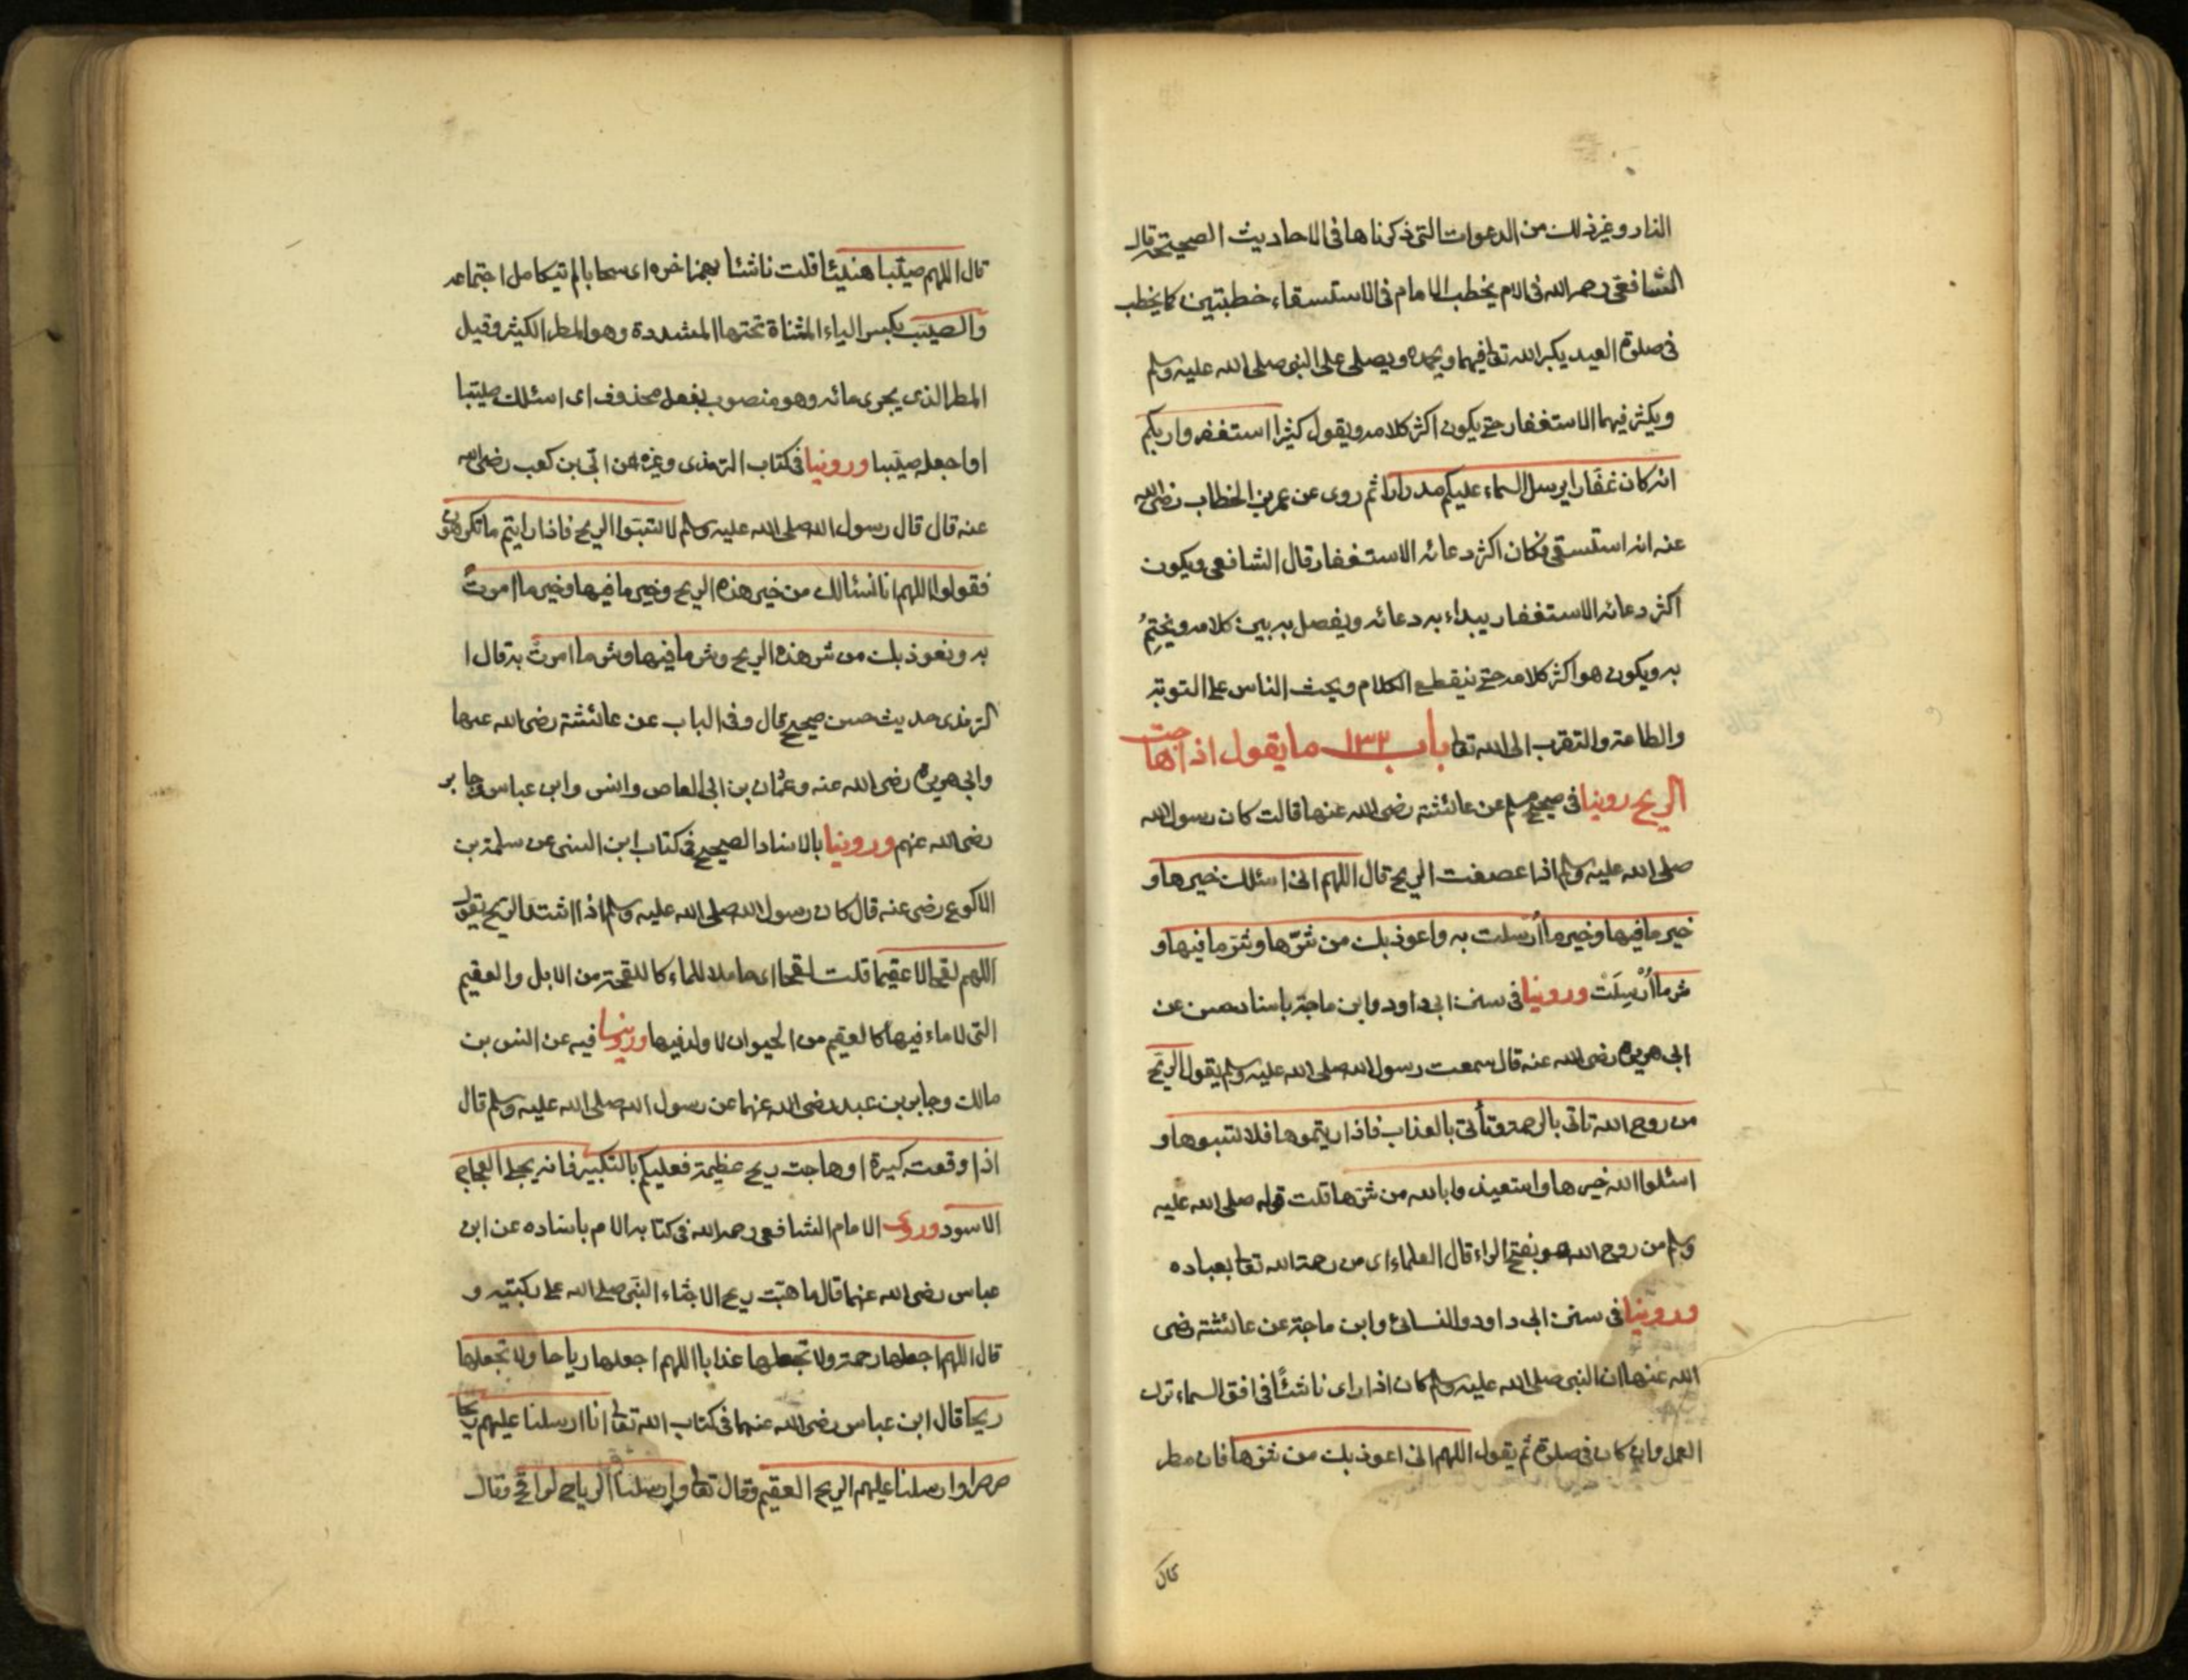 النار وغير ذلك من الدعوات التى ذكرناها فى الاحاديث الصحيحة قال
الشافعى رحمه الله فى الام يخطب الامام فى الاستسقاء خطبتين كما يخطب
فى صلوة العيد يكبر الله تعالى فيهما ويحمده ويصلى على النبى صلى الله عليه وسلم
ويكثر فيهما الاستغفار حتى يكون اكثر كلامه ويقول كثيرا استغفروا ربكم
انه كان غفارا يرسل السماء عليكم مدرارا ثم روى عن عمر بن الخطاب رضى الله
عنه انه استسقى فكان اكثر دعائه الاستغفار قال الشافعى ويكون
اكثر دعائه الاستغفار يبداء به دعائه ويفصل به بين كلامه ويختم
به ويكون هو اكثر كلامه حتى ينقطع الكلام ويحث الناس على التوبة
والطاعة والتقرب الى الله تعالى باب ١٣٣ ما يقول اذا هاجت
الريح روينا فى صحيح مسلم عن عائشة رضى الله عنها قالت كان رسول الله
صلى الله عليه وسلم اذا عصفت الريح قال اللهم انى اسئلك خيرها و
خير ما فيها وخير ما أرسلت به واعوذ بك من شرّها وشر ما فيها و
شر ما أُرْسِلَتْ وروينا فى سنن ابى داود وابن ماجة باسناد حسن عن
ابى هريرة رضى الله عنه قال سمعت رسول الله صلى الله عليه وسلم يقول الريح
من روح الله تاتى بالرحمة وتأتى بالعذاب فاذا رايتموها فلا تسبوها و
اسئلوا الله خيرها واستعيذوا بالله من شرها قلت قوله صلى الله عليه
وسلم من روح الله هو بفتح الراء قال العلماء اى من رحمة الله تعالى بعباده
وروينا فى سنن ابى داود والنسائى وابن ماجة عن عائشة رضى
الله عنها ان النبى صلى الله عليه وسلم كان اذا راى ناشئًا فى افق السماء ترك
العمل وان كان فى صلوة ثم يقول اللهم انى اعوذ بك من شرها فان مطر
قال
قال اللهم صيّبا هنيئًا قلت ناشئا بهمز اخره اى سحابا لم تيكامل اجتماعه
والصيب بكسر الياء المثناة تحتها المشددة وهو المطر الكثير وقيل
المطر الذى يجرى مائه وهو منصوب بفعل محذوف اى اسئلك صيّبا
او اجعله صيّبا وروينا فى كتاب الترمذى وغيره عن ابّى بن كعب رضى الله
عنه قال قال رسول الله صلى الله عليه وسلم لا تسبّوا الريح فاذا رايتم ما تكرهون
فقولوا اللهم انا نسئالك من خير هذه الريح وخير ما فيها وخير ما امرت
به ونعوذ بك من شر هذه الريح وشر ما فيها وشر ما امرت به قال ا
لترمذى حديث حسن صحيح قال وفى الباب عن عائشة رضى الله عنها
وابى هريرة رضى الله عنه وعثمان بن ابى العاص وانس وابن عباس وجابر
رضى الله عنهم وروينا بالاسناد الصحيح فى كتاب ابن السنى عن سلمة بن
الاكوع رضى عنه قال كان رسول الله صلى الله عليه وسلم اذا اشتد الريح يقول
اللهم لقحا لا عقيما قلت لقحا اى حاملا للماء كاللقحة من الابل والعقيم
التى لا ماء فيها كالعقيم من الحيوان لا ولد فيها وروينا فيه عن انس بن
مالك وجابر بن عبد رضى الله عنهما عن رسول الله صلى الله عليه وسلم قال
اذا وقعت كبيرة او هاجت ريح عظيمة فعليكم بالتكبير فانه يجلى العجاج
الاسود وروى الامام الشافعى رحمه الله فى كتابه الام باسناده عن ابن
عباس رضى الله عنهما قال ما هبّت ريح الا جثاء النبّى صلى الله على ركبتيه و
قال اللهم اجعلها رحمة ولا تجعلها عذابا اللهم اجعلها رياحا ولا تجعلها
ريحا قال ابن عباس رضى الله عنهما فى كتاب الله تعالى انا ارسلنا عليهم ريحا
صرصرا وارسلنا عليهم الريح العقيم وقال تعالى وارسلنا الرياح لواقح وقال